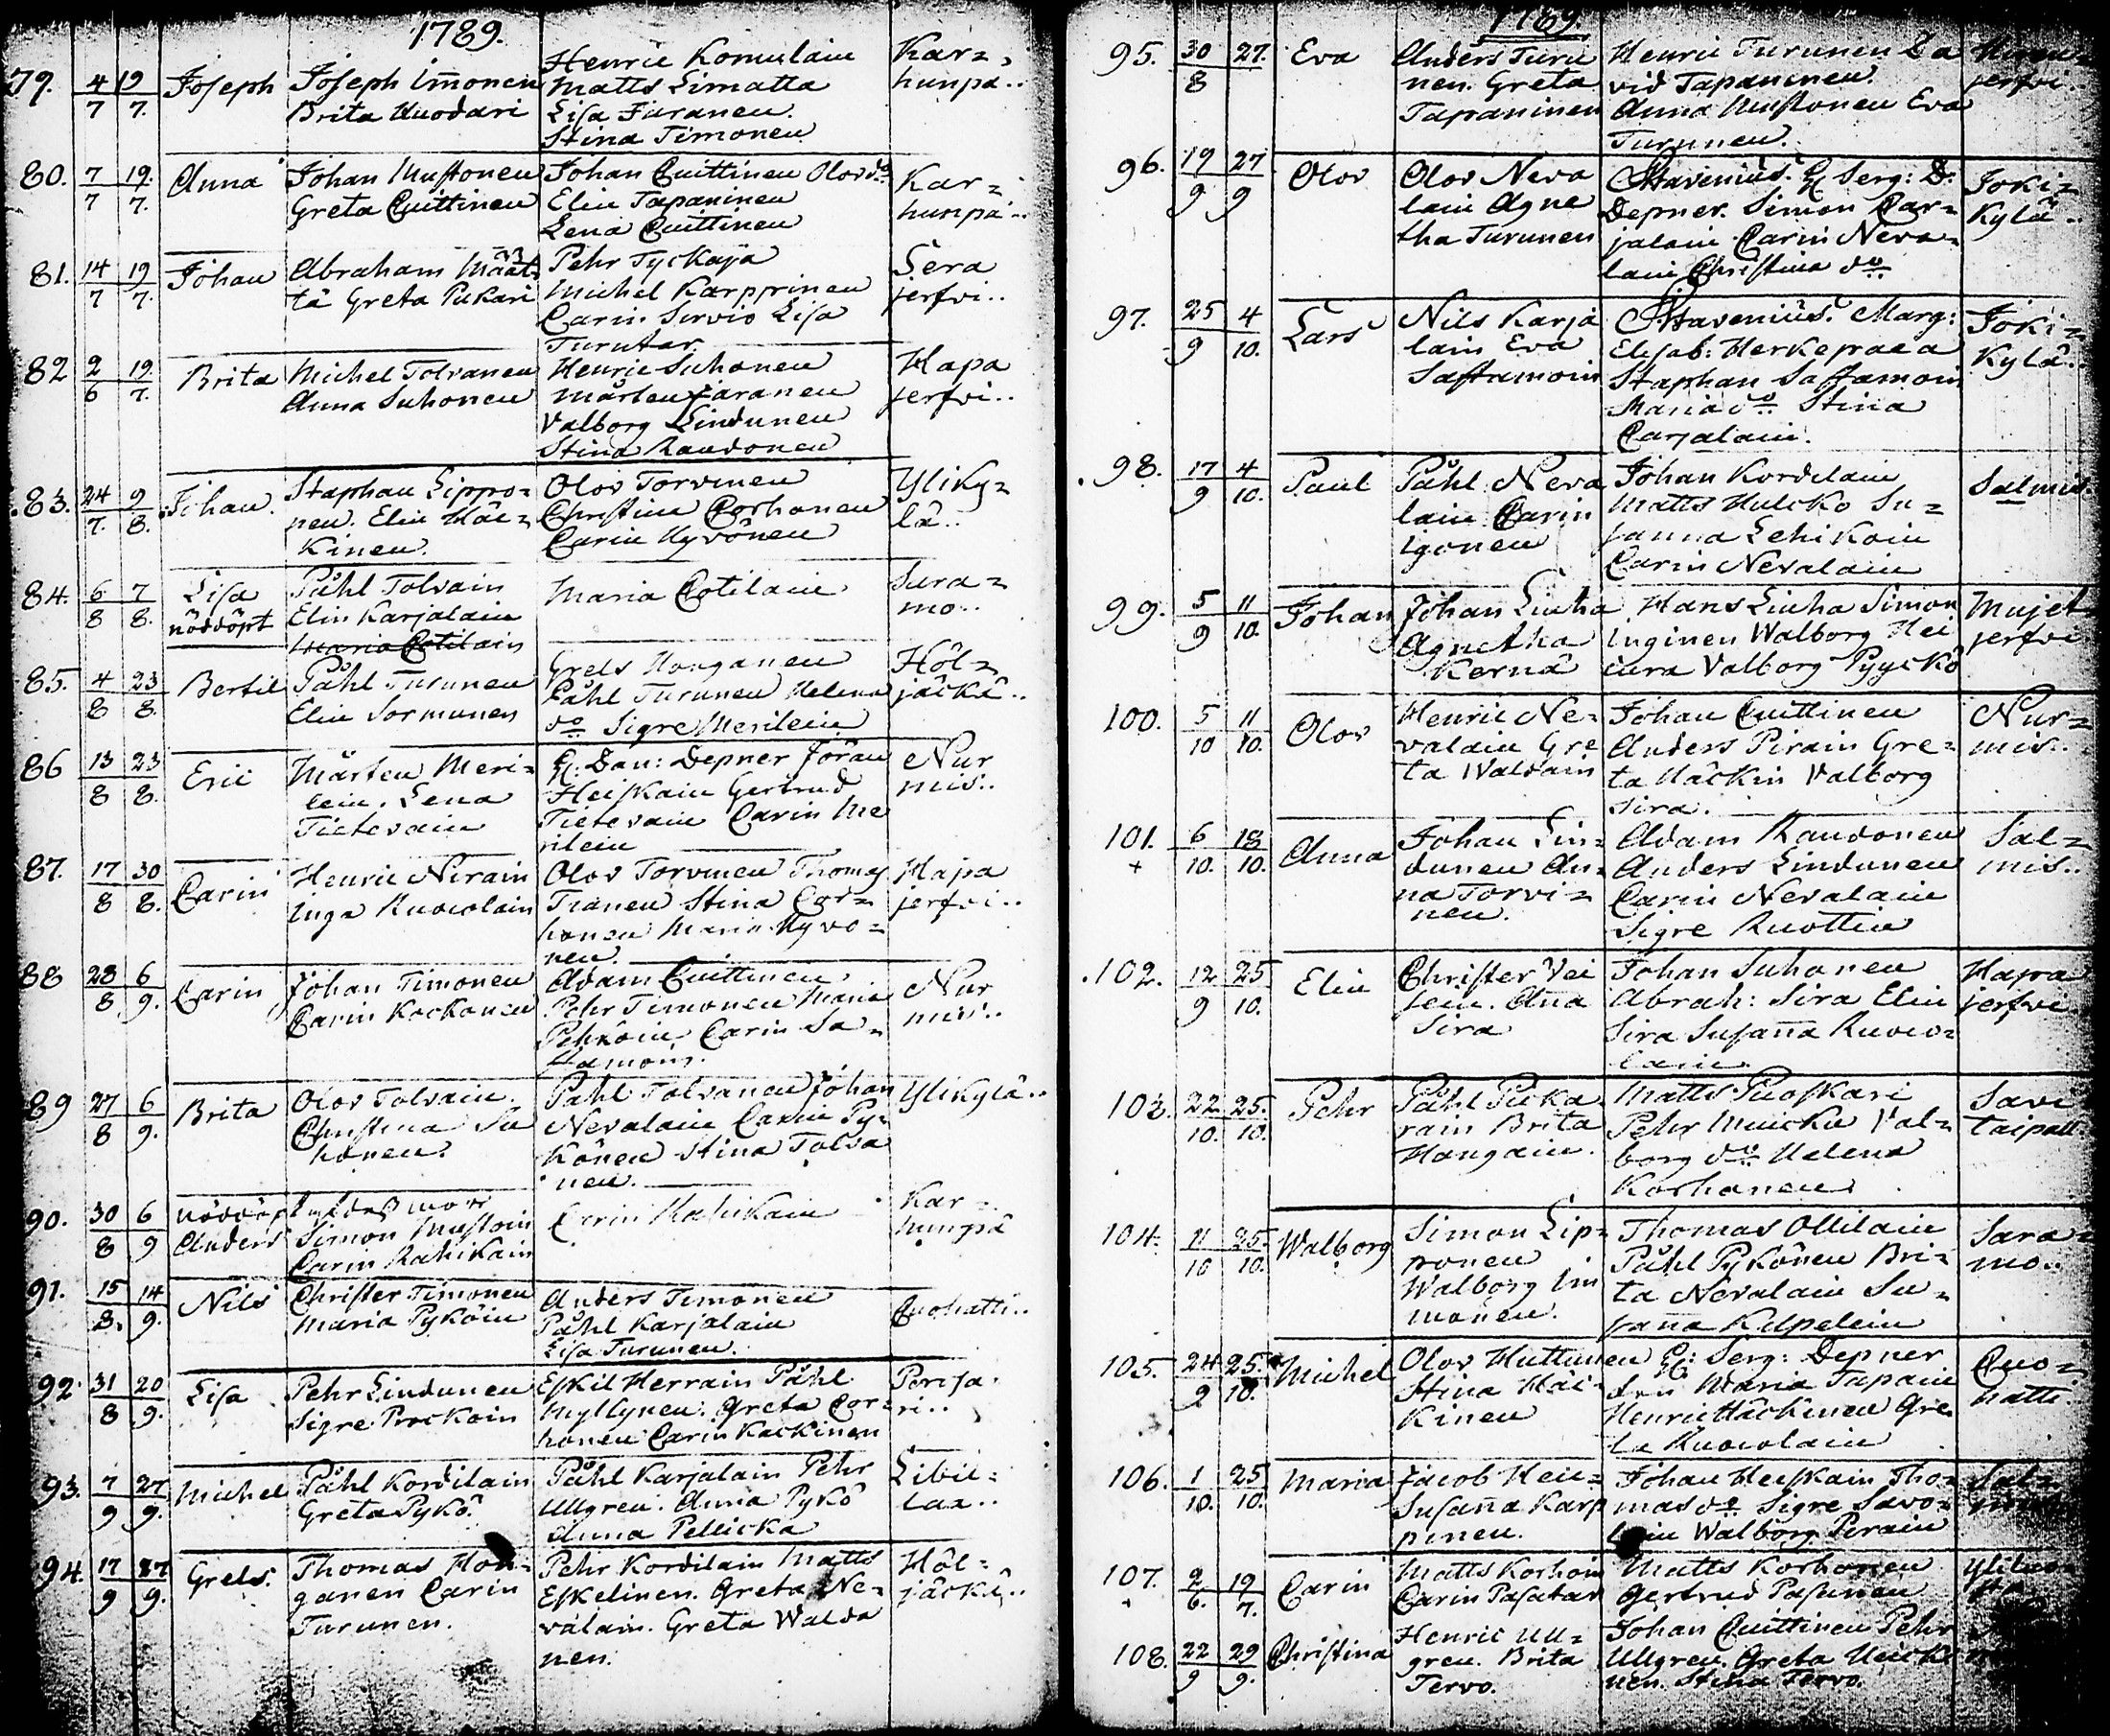 1789.
79. 4/7 19/7. Joseph Joseph Imonen Brita Kuodari Henric Komulain Matts Limatta Lisa Juranen. Stina Timonen Kar= hunpä..
80. 7/7 19./7. Anna Johan Mustonen Greta Quittinen Johan Quittinen Olov do Elin Tapaninen Lena Quittinen Kar= hunpä..
81. 14/7 19/7. Johan Abraham Määt tä Greta Pukari Pehr Tyckäjä Michel Karpprinen Carin Sirviö Lisa Turutar Lera jerfvi..
82 2/6 19./7. Brita Michel Tolvanen Anna Suhonen Henric Suhonen Mårten Juranen Valborg Lindunen Stina Raudonen Hapa jerfvi..
83. 24/7. 9/8. Johan. Staphan Lippo= nen. Elin Häi= kinen. Olov Torvinen Christina Corhonen Carin Hyvönen Yliky= lä..
84. 6/8 7/8. Lisa nöddöpt Påhl Tolvain Elin Karjalain Maria Cotilain Maria Cotilain Sara= mo..
85. 4/8 23/8. Bertil Påhl Turunen Elin Sormunen Grels Honganen Påhl Turunen Helena do Sigre Merilein Höl= jäckä..
86 13/8 23/8. Eric Mårten Meri= lein. Lena Tietevain Dan: Depner Jöran Heiskain Gertrud Tietevain Carin Me rilein Nur mis..
87. 17/8 30/8. Carin Henric Nirain Inga Ruocolain Olov Torvinen Thomas Tranen Stina Cor= honen Maria Hyvö= nen. Hapa jerfvi..
88 28/8. 6/9. Carin Johan Timonen Carin Kockonen Adam Quittinen Pehr Timonen Maria Pehkoin Carin Sa= stamoin. Nur mis..
89 27/8 6/9. Brita Olov Tolvain. Christina Su honen. Påhl Tolvanen Johan Nevalain Carin Py= könen Stina Tolva nen. Ylikylä..
90. 30/8 6/9 nöddöpt Anders Simon Mustoin Carin Rahikain Carin Rahikain Kar= hunpä
91. 15/8. 14/9. Nils Christer Timonen Maria Pyköin Anders Timonen Påhl Karjalain Lisa Turunen. Quohatti..
92. 31/8 20/9. Lisa Pehr Lindunen Sigre Prockoin Eskil Herrain Påhl Myllynen. Greta Cor= honen Carin Kackinen Porosa= ri..
93. 7/9 27/9. Michel Påhl Kordilain Greta Pykö. Påhl Karjalain Pehr Ullgren. Anna Pykö Anna Pellicka Libil= lax..
94. 17/9 27/9. Grels. Thomas Hon= ganen Carin Turunen. Pehr Kordilain Matts Eskelinen. Greta Ne= valain. Greta Walda nen. Höl= jäckä..
1789.
95. 30/8 27. Eva Anders Turu nen. Greta Tapaninen Henric Turunen Da vid Tapaninen. Anna Mustonen Eva Turunen. jerfvi..
96. 19/9 27/9 Olov Olov Neva lain Agne tha Turunen Stavenius. Serg: D. Depner. Simon Car= jalain Carin Neva= lain Christina do Joki= kylä..
97. 25/9 4/10. Lars Nils Karja lain Eva Sastamoin Stavenius. Marg: Elisab: Herkepaea Staphan Sastamoin Maria do Stina Carjalain. Joki= kylä..
98. 17/9 4/10. Paul Påhl Neva lain Carin Igonen Johan Kordilain Matts Hulcko Su= sanna Lehikoin Carin Nevalain Salmis.
99. 5/9 11/10. Johan Johan Liuha Agnetha Kernä Hans Liuha Simon Inginen Walborg Hei cura Valborg Pyyckö Mujet jerfvi
100. 5/10 11/10. Olov Henric Ne= valain Gre ta Waldain Johan Quittinen Anders Pirain Gre= ta Häckin Valborg Sira. Nur= mis..
101. + 6/10. 18/10. Anna Johan Lin= dunen An= na Torvi= nen. Adam Raudonen Anders Lindunen Carin Nevalain Sigre Ruottin Sal= mis..
102. 12/9 25/10. Elin Christer Vei sein. Aña Sira Johan Suhonen Abrah: Sira Elin Sira Susaña Ruoco= lain. Hapa jerfvi
103. 22/10. 25./10. Pehr Påhl Picka rain Brita Hongain. Matts Puoskari Pehr Muicku Val= borg do Helena Korhonen Savi taipall.
104. 11/10 25./10. Walborg Simon Lip= ponen Walborg Im monen. Thomas Ollilain Påhl Pykönen Bri= ta Nevalain Su= sana Kilpelein Sara= mo..
105. 24/9 25./10. Michel Olov Huttunen Stina Häi= kinen Serg: Depner Maria Tapain Henric Häckinen Gre ta Ruocolain Quo= hatti.
106. 1/10. 25/10. Maria Jacob Hei= Susaña Karp pinen. Johan Heiskain Tho= mas do Sigre Savo= lain Walborg Perain Sal= mis
107. 2/6. 19/7. Carin Matts Korhoin Carin Pasatar Matts Korhonen Gertrud Pasanen
108. 22/9 29/9. Christina Henric Ull= gren. Brita Tervo. Johan Quittinen Pehr Ullgren. Greta nen. Stina Tervo.